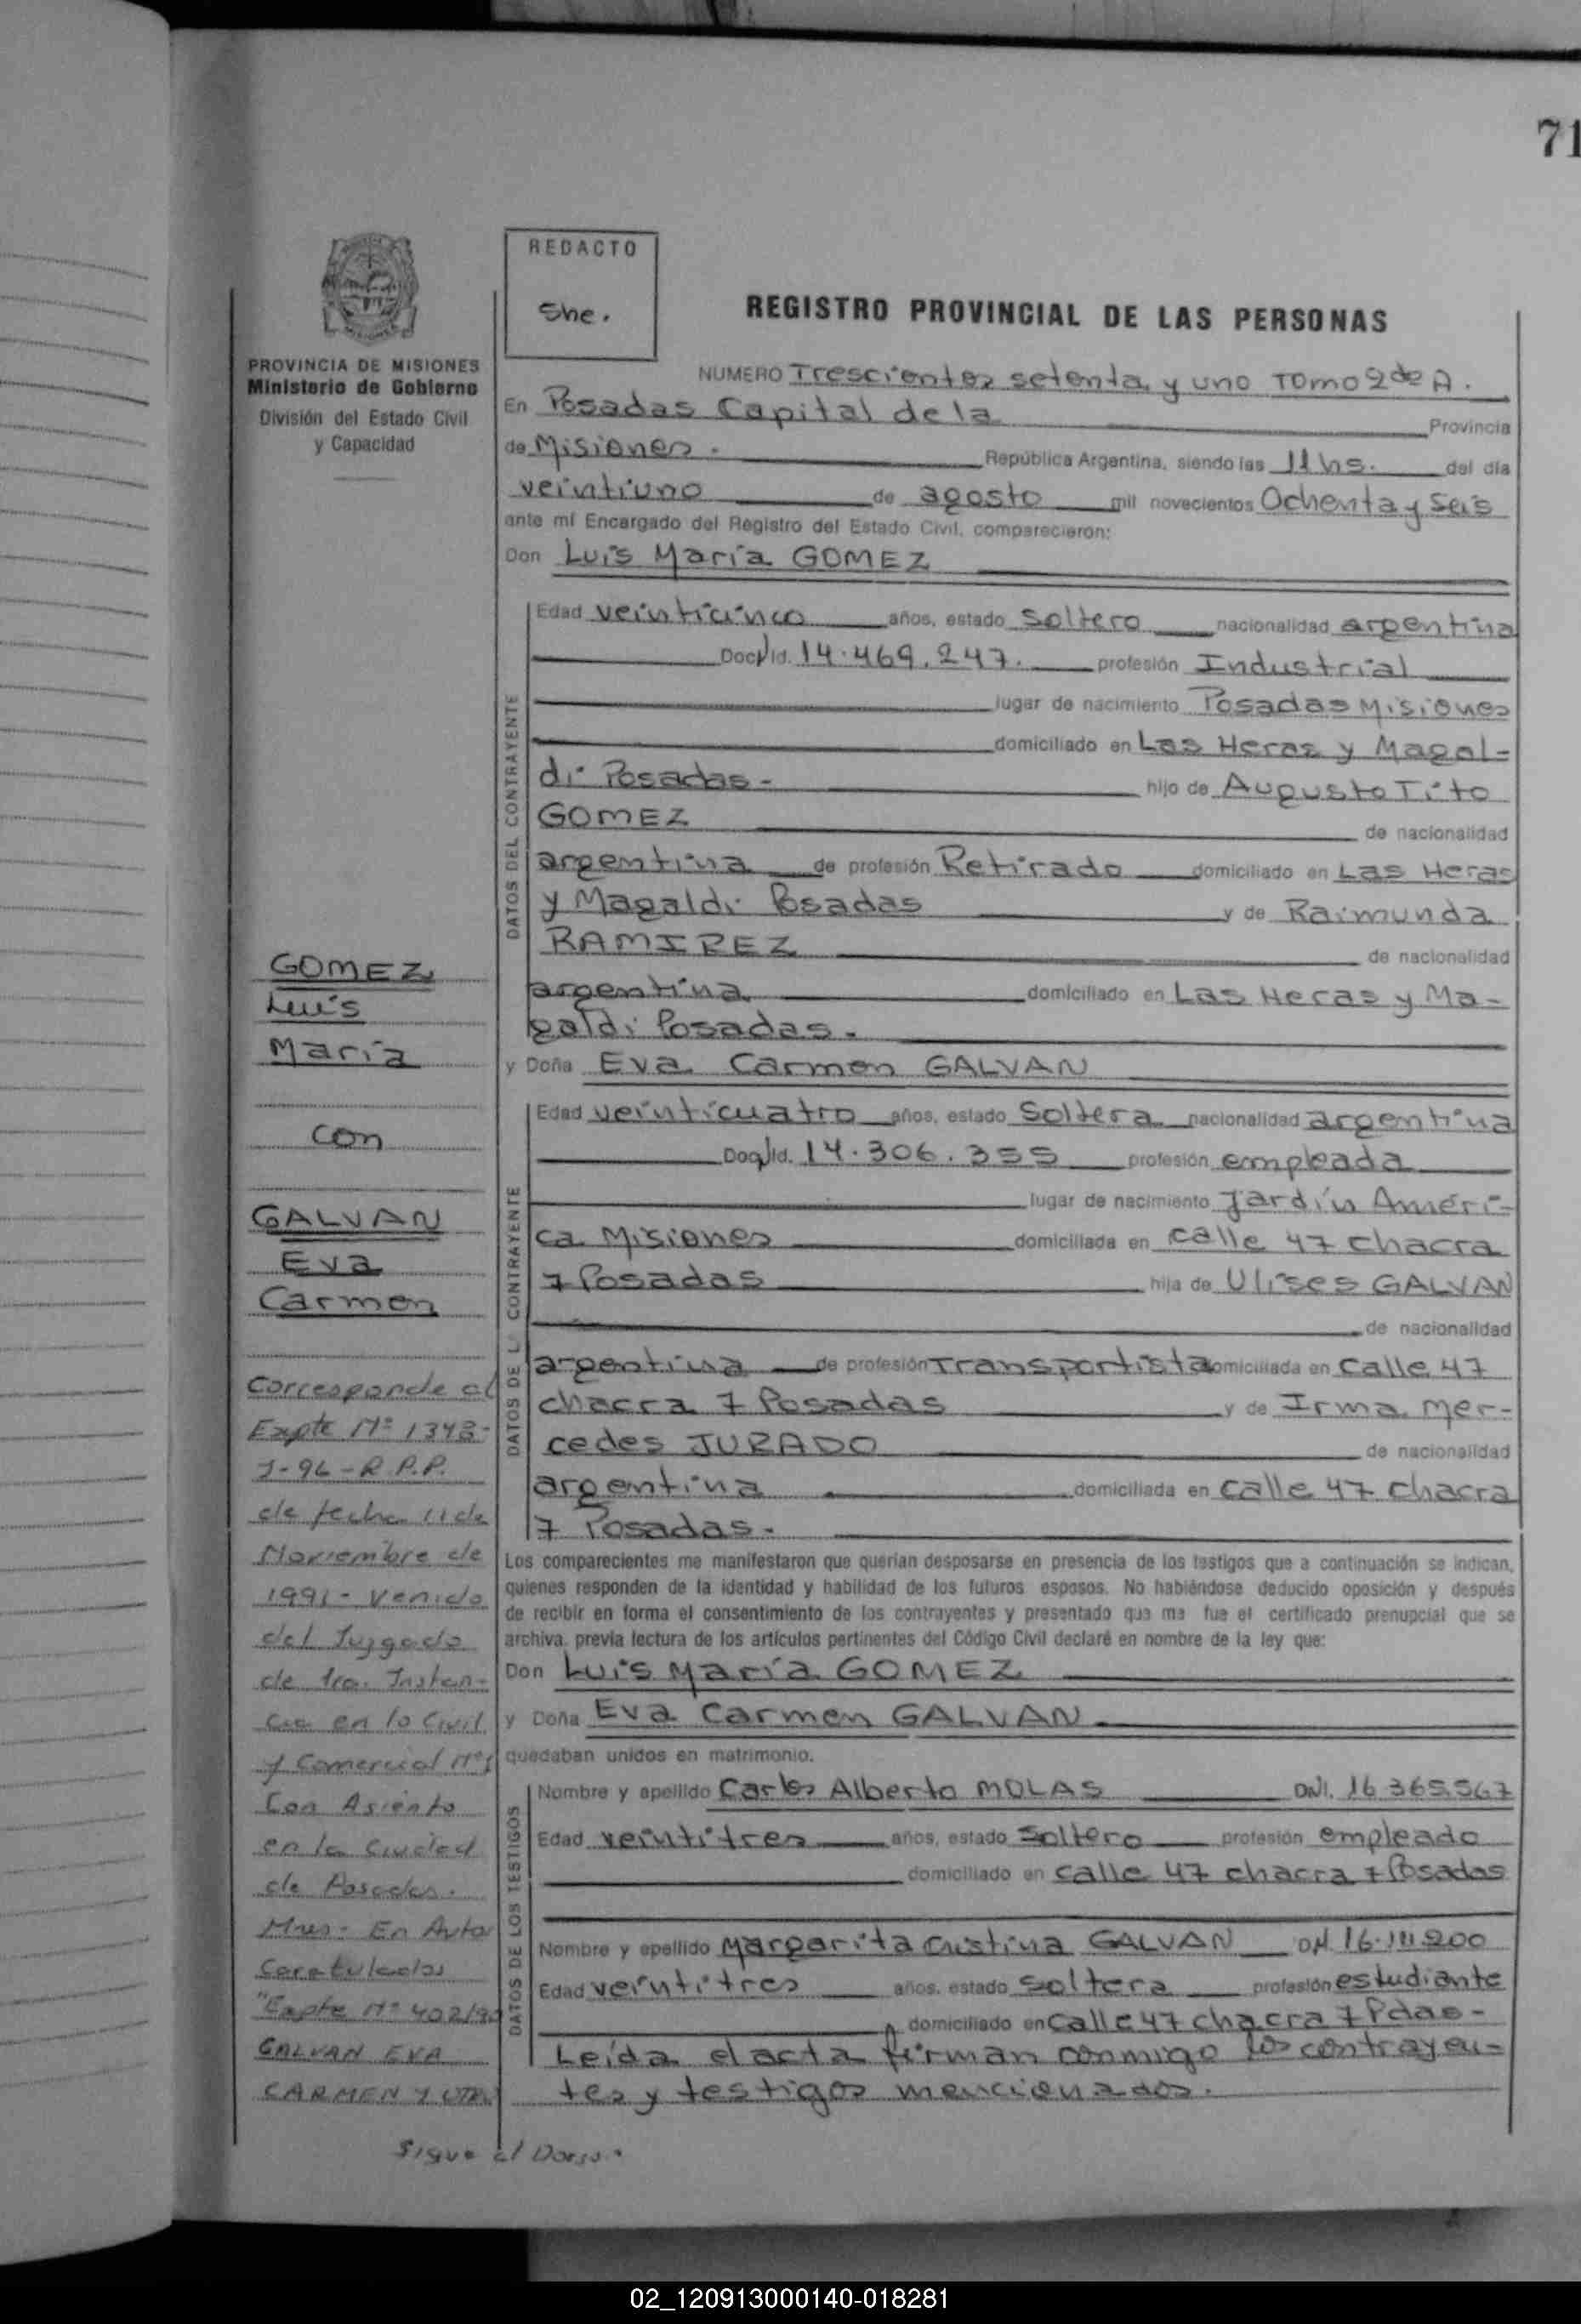 71
REDACTO
She.
REGISTRO PROVINCIAL DE LAS PERSONAS
PROVINCIA DE MISIONES
Ministerio de Gobierno
División del Estado Civil
y Capacidad
NUMERO Trescientos setenta y uno Tomo 2 de A.
En Posadas Capital de la Provincia
de Misiones. República Argentina, siendo las 11 hs. del día
veintiuno de agosto mil novecientos Ochenta y Seis
ante mí Encargado del Registro del Estado Civil, comparecieron:
Don Luis María GOMEZ
DATOS DEL CONTRAYENTE
Edad veinticinco años, estado Soltero nacionalidad argentina
Doc. Id. 14.469.247. profesión Industrial
lugar de nacimiento Posadas Misiones
domiciliado en Las Heras y Magal-
di Posadas- hijo de Augusto Tito
GOMEZ de nacionalidad
argentina de profesión Retirado domiciliado en Las Heras
y Magaldi Posadas y de Raimunda
RAMIREZ de nacionalidad
argentina domiciliado en Las Heras y Ma-
galdi Posadas.
y Doña Eva Carmen GALVAN
DATOS DE LA CONTRAYENTE
Edad veinticuatro años, estado Soltera nacionalidad argentina
Doc. Id. 14.306.355 profesión empleada
lugar de nacimiento Jardín Améri-
ca Misiones domiciliada en calle 47 chacra
7 Posadas hija de Ulises GALVAN
de nacionalidad
argentina de profesión Transportista domiciliada en Calle 47
chacra 7 Posadas y de Irma Mer-
cedes JURADO de nacionalidad
argentina domiciliada en calle 47 chacra
7 Posadas.
Los comparecientes me manifestaron que querían desposarse en presencia de los testigos que a continuación se indican,
quienes responden de la identidad y habilidad de los futuros esposos. No habiéndose deducido oposición y después
de recibir en forma el consentimiento de los contrayentes y presentado que me fue el certificado prenupcial que se
archiva, previa lectura de los artículos pertinentes del Código Civil declaré en nombre de la ley que:
Don Luis María GOMEZ
y Doña Eva Carmen GALVAN
quedaban unidos en matrimonio.
DATOS DE LOS TESTIGOS
Nombre y apellido Carlos Alberto MOLAS DNI. 16.365.567
Edad veintitres años, estado Soltero profesión empleado
domiciliado en calle 47 chacra 7 Posadas
Nombre y apellido Margarita Cristina GALVAN DNI 16.111.200
Edad veintitres años, estado soltera profesión estudiante
domiciliado en Calle 47 chacra 7 Pdas-
Leída el acta firman conmigo los contrayen-
tes y testigos mencionados.
GOMEZ
Luis
María
con
GALVAN
Eva
Carmen
Corresponde al
Expte Nº 1348-
J-96-R.P.P.
de fecha 11 de
Noviembre de
1991- Venido
del Juzgado
de 1ra. Instan-
cia en lo Civil
y Comercial Nº1
Con Asiento
en la Ciudad
de Posadas.
Mnes- En Autos
Caratulados
"Expte Nº 402/90
GALVAN EVA
CARMEN Y OTRO
Sigue al Dorso.
02_120913000140-018281